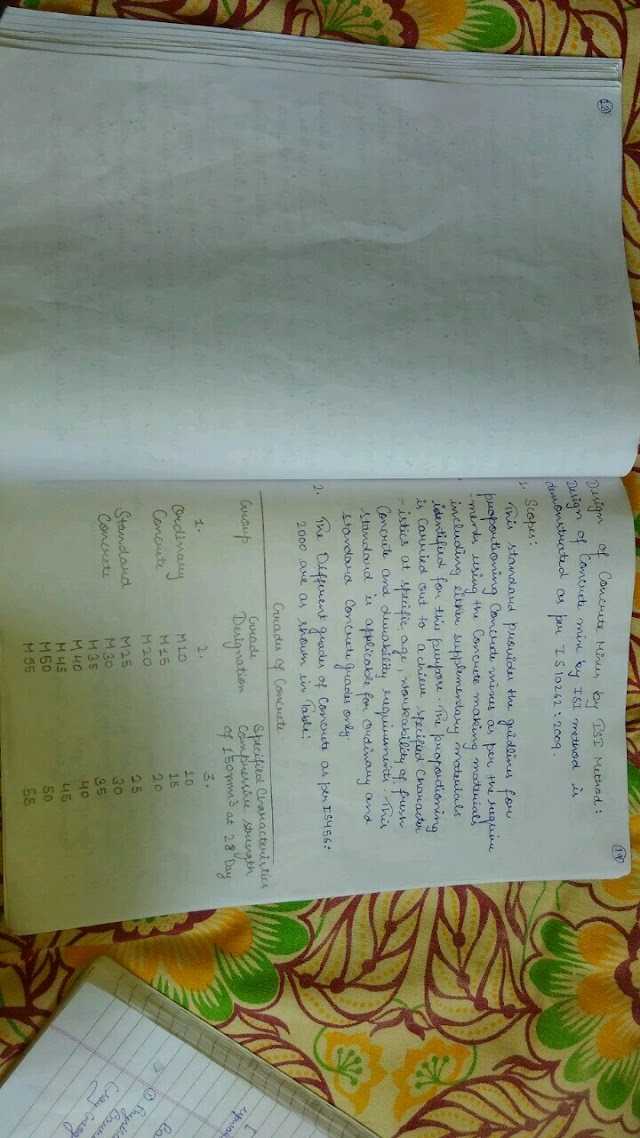 13
19
Design of Concrete Mixes by ISI Method:
Design of Concrete mix by ISI method is
demonstrated as per IS 10262:2009.
1. Scope:
This standard provides the guidlines for
proportioning Concrete mixes as per the require
-ments using the Concrete making materials
including other supplementary materials
identified for this purpose. The proportioning
is carried out to achieve specified Character
-istics at specific age, workability of fresh
Concrete and durability requirements. This
standard is applicable for ordinary and
standard Concrete grades only.
2. The Different grades of Concrete as per IS 456:
2000 are as shown in Table:
Grades of Concrete
Group Grade Designation Specified Characteristics Compressive strength of 150mm³ at 28 Day
1. 2. 3.
Ordinary Concrete M10 10
M15 15
M20 20
Standard Concrete M25 25
M30 30
M35 35
M40 40
M45 45
M50 50
M55 55